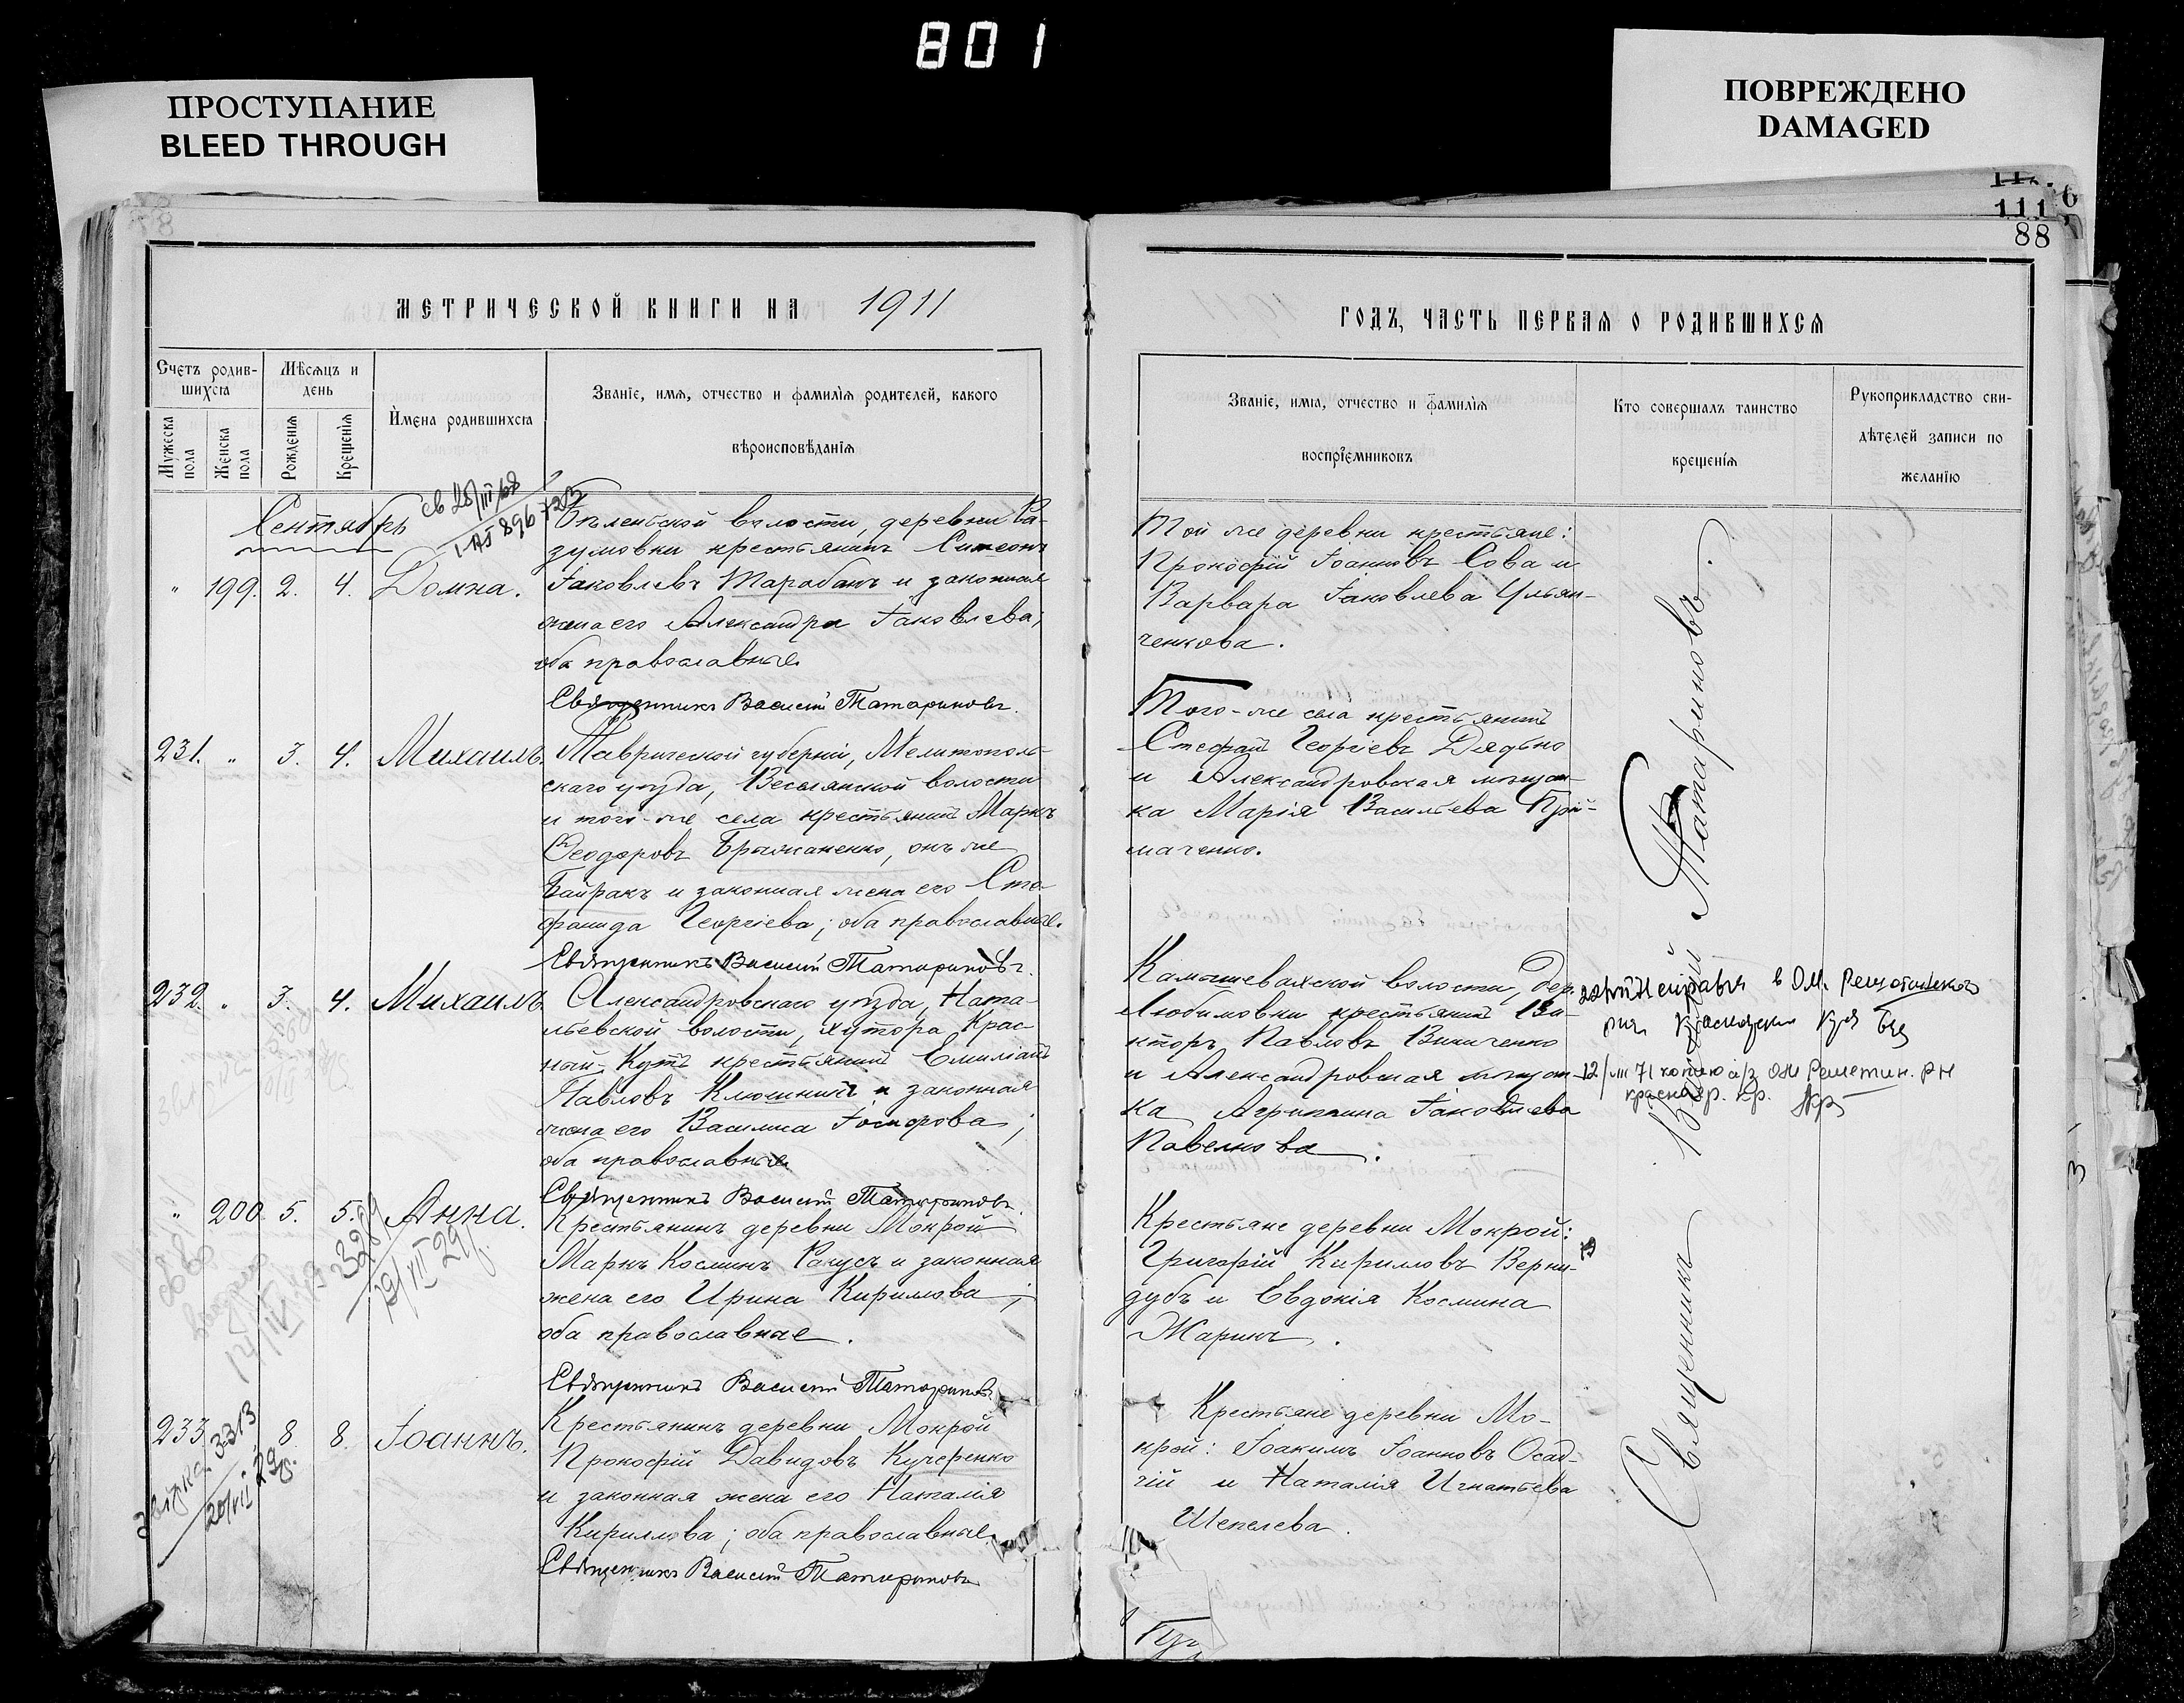 801
ПРОСТУПАНИЕ
BLEED THROUGH
ПОВРЕЖДЕНО
DAMAGED
111
88
МЕТРИЧЕСКОЙ КНИГИ НА 1911
ГОДЪ, ЧАСТЬ ПЕРВАЯ О РОДИВШИХСЯ
Счетъ родив-
шихся
Мужеска пола
Женска пола
Мѣсяцъ и день
Рожденія
Крещенія
Имена родившихся
Званіе, имя, отчество и фамилія родителей, какого
вѣроисповѣданія
Званіе, имя, отчество и фамилія
воспріемниковъ
Кто совершалъ таинство
крещенія
Рукоприкладство сви-
дѣтелей записи по
желанію
Сентябрь
" 199. 2. 4. Домна.
Бѣленьской волости, деревни Ра-
зумовки крестьянинъ Симеонъ
Іаковлевъ Тарабанъ и законная
жена его Александра Іаковлева;
оба православные.
Священникъ Василій Татариновъ.
Той же деревни крестьяне:
Прокофій Іоанновъ Сова и
Варвара Іаковлева Ульян-
ченкова.
231. " 3. 4. Михаилъ.
Таврической губерніи, Мелитополь-
скаго уѣзда, Веселянской волости
и того-же села крестьянинъ Маркъ
Ѳеодоровъ Бражаненко, онъ же
Байракъ и законная жена его Сте-
фанида Георгіева; оба православные.
Священникъ Василій Татариновъ.
Того-же села крестьянинъ
Стефанъ Георгіевъ Дядько
и Александровская мѣщан-
ка Марія Васильева Прій-
маченко.
232. " 3. 4. Михаилъ.
Александровскаго уѣзда, Ната-
льевской волости, хутора Крас-
ный-Кутъ крестьянинъ Емиліанъ
Павловъ Клюшникъ и законная
жена его Василиса Іосифова;
оба православные.
Священникъ Василій Татариновъ.
Камышевахской волости, дер.
Любимовки крестьянинъ Ви-
кторъ Павловъ Виниченко
и Александровская мѣщан-
ка Агриппина Іаковлева
Павелкова.
12/III 71 копию а/з
" 200 5. 5. Анна.
Крестьянинъ деревни Мокрой
Маркъ Косминъ Ракусъ и законная
жена его Ирина Кириллова;
оба православные.
Священникъ Василій Татариновъ
Крестьяне деревни Мокрой:
Григорій Кирилловъ Верни-
дубъ и Евдокія Космина
Жарикъ.
233 8. 8. Іоаннъ.
Крестьянинъ деревни Мокрой
Прокофій Давидовъ Кучеренко
и законная жена его Наталія
Кириллова; оба православные.
Священникъ Василій Татариновъ
Крестьяне деревни Мо-
крой: Іоакимъ Іоанновъ Осад-
чій и Наталія Игнатьева
Шепелева.
Священникъ Василій Татариновъ.